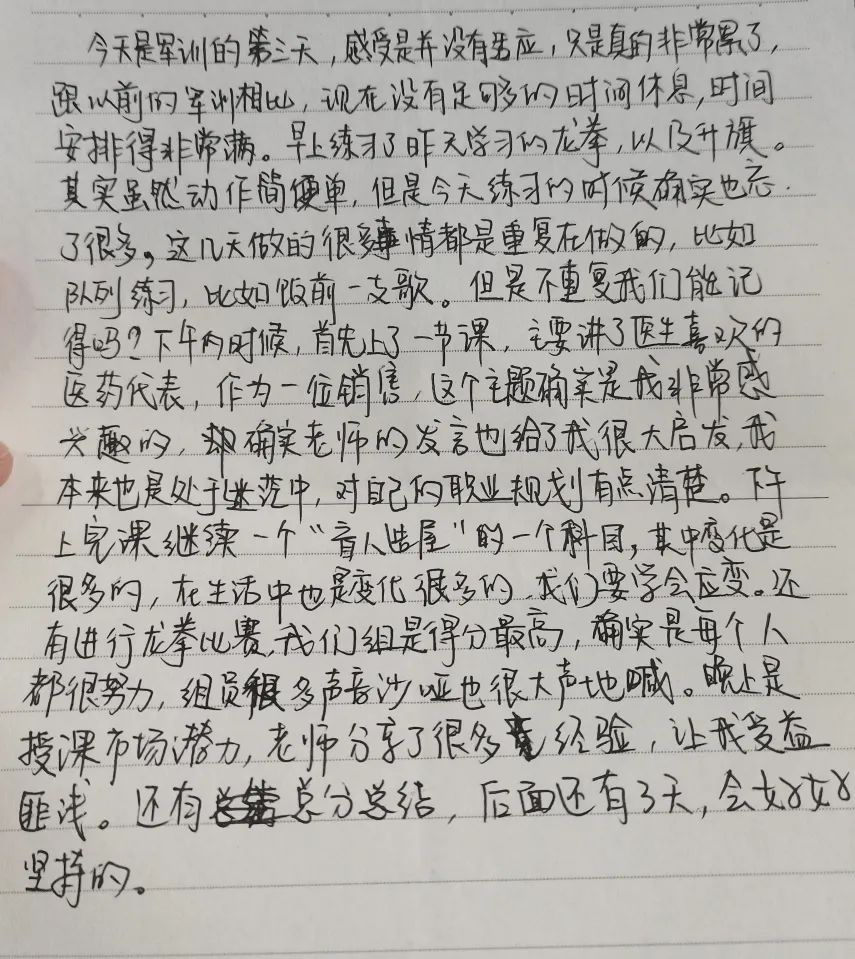 今天是军训的第三天，感受是并没有适应，只是真的非常累了，
跟以前的军训相比，现在没有足够多的时间休息，时间
安排得非常满。早上练习了昨天学习的龙拳，以及升旗。
其实虽然动作简便单，但是今天练习的时候确实也忘
了很多。这几天做的很多事情都是重复在做的，比如
队列练习，比如饭前一支歌。但是不重复我们能记
得吗？下午的时候，首先上了一节课，主要讲了医生喜欢的
医药代表，作为一位销售，这个主题确实是我非常感
兴趣的，确实老师的发言也给了我很大启发，我
本来也是处于迷茫中，对自己的职业规划有点清楚。下午
上完课继续一个“盲人造屋”的一个科目，其中变化是
很多的，在生活中也是变化很多的，我们要学会应变。还
有进行龙拳比赛，我们组是得分最高，确实是每个人
都很努力，组员很多声音沙哑也很大声地喊。晚上是
授课市场潜力，老师分享了很多经验，让我受益
匪浅。还有总分总结，后面还有3天，会好好
坚持的。